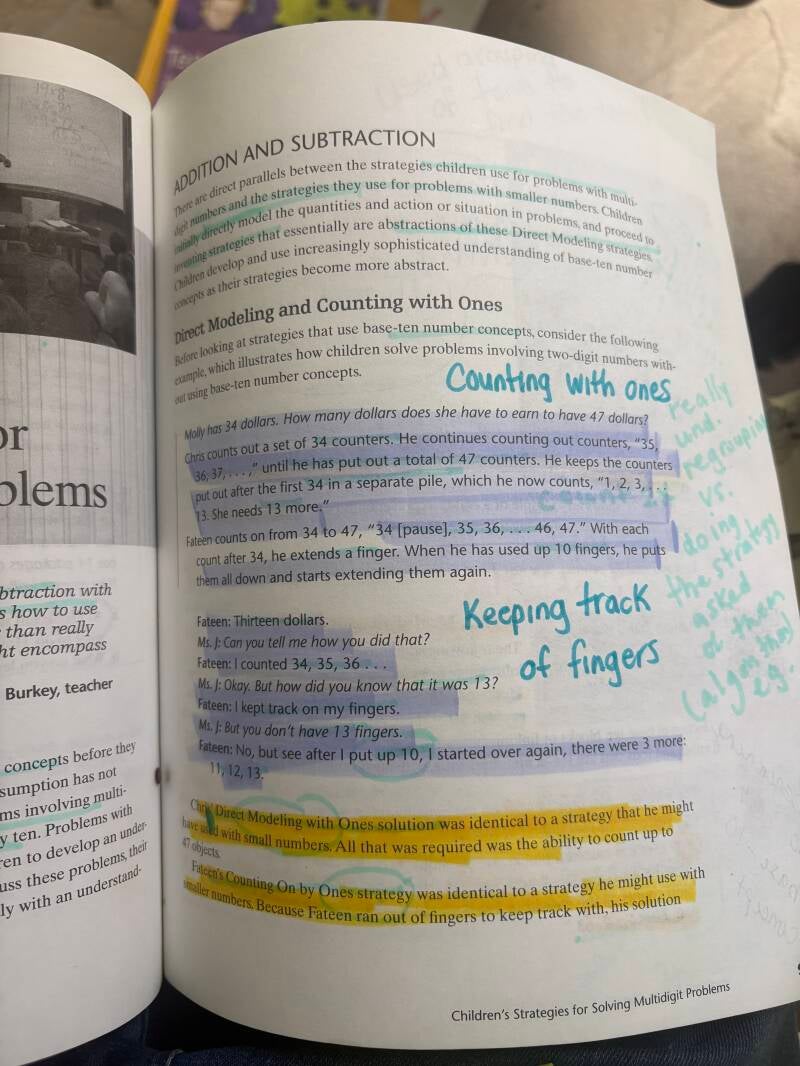 or
blems
btraction with
s how to use
than really
ht encompass
Burkey, teacher
concepts before they
sumption has not
ms involving multi-
y ten. Problems with
ren to develop an under-
uss these problems, their
ly with an understand-
ADDITION AND SUBTRACTION
There are direct parallels between the strategies children use for problems with multi-
digit numbers and the strategies they use for problems with smaller numbers. Children
initially directly model the quantities and action or situation in problems, and proceed to
inventing strategies that essentially are abstractions of these Direct Modeling strategies.
Children develop and use increasingly sophisticated understanding of base-ten number
concepts as their strategies become more abstract.
Direct Modeling and Counting with Ones
Before looking at strategies that use base-ten number concepts, consider the following
example, which illustrates how children solve problems involving two-digit numbers with-
out using base-ten number concepts.
Counting with ones
Molly has 34 dollars. How many dollars does she have to earn to have 47 dollars?
Chris counts out a set of 34 counters. He continues counting out counters, “35,
36, 37, . . . ,” until he has put out a total of 47 counters. He keeps the counters
put out after the first 34 in a separate pile, which he now counts, “1, 2, 3, . . .
13. She needs 13 more.”
Fateen counts on from 34 to 47, “34 [pause], 35, 36, . . . 46, 47.” With each
count after 34, he extends a finger. When he has used up 10 fingers, he puts
them all down and starts extending them again.
really
und.
regrouping
vs.
doing
the strategy
asked
of them
(algorithm)
eg.
Keeping track
of fingers
Fateen: Thirteen dollars.
Ms. J: Can you tell me how you did that?
Fateen: I counted 34, 35, 36 . . .
Ms. J: Okay. But how did you know that it was 13?
Fateen: I kept track on my fingers.
Ms. J: But you don’t have 13 fingers.
Fateen: No, but see after I put up 10, I started over again, there were 3 more:
11, 12, 13.
Chris’ Direct Modeling with Ones solution was identical to a strategy that he might
have used with small numbers. All that was required was the ability to count up to
47 objects.
Fateen’s Counting On by Ones strategy was identical to a strategy he might use with
smaller numbers. Because Fateen ran out of fingers to keep track with, his solution
Children’s Strategies for Solving Multidigit Problems